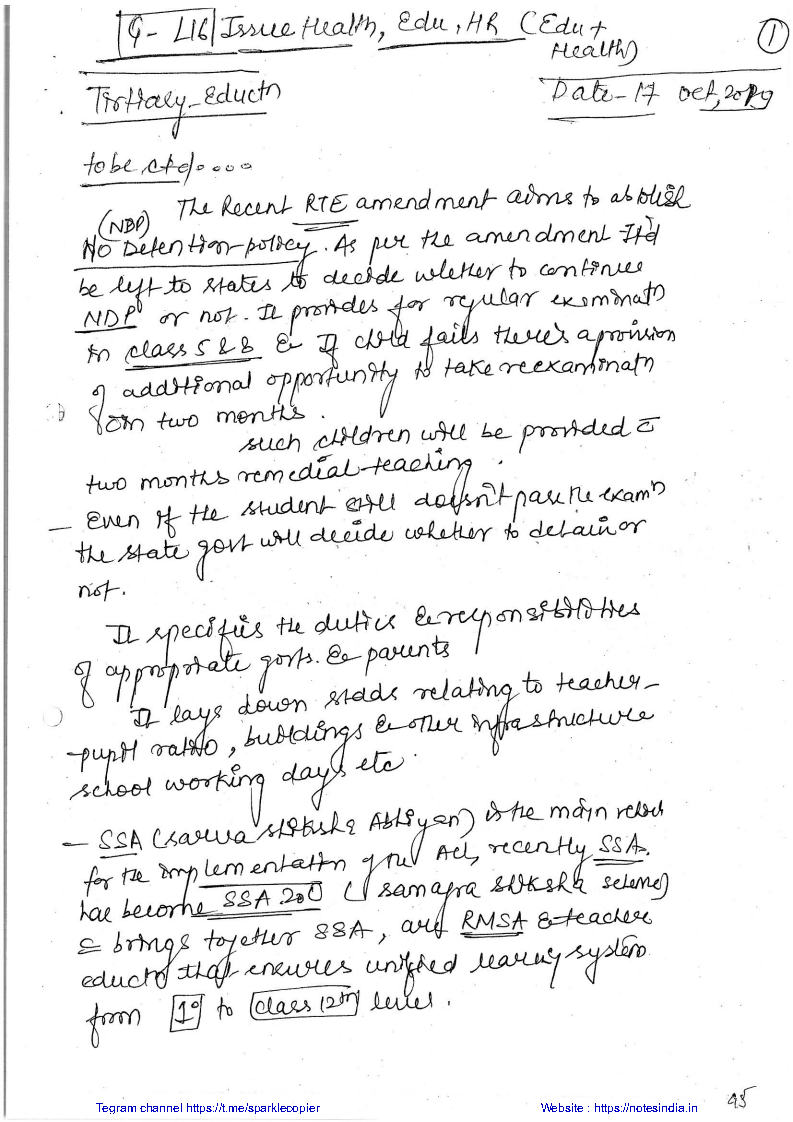 G- L16 Issue Health, Edu, HR (Edu +
Health)
1
Tirtiary-Eductn
Date-17 Oct, 2019
to be ctd....
The Recent RTE amendment aims to abolish
(NDP)
No Detention-policy. As per the amendment It'd
be left to states to decide whether to continue
NDP or not. It provides for regular examinatn
in class 5 & 8 & If child fails there's a provision
of additional opportunity to take reexaminatn
in two months.
such children will be provided
two months remedial-teaching.
— Even if the student still doesn't pass the exam'n
the state govt will decide whether to detain or
not.
It specifies the duties & responsibilities
of appropriate govts. & parents
It lays down stads relating to teacher-
-pupil ratio, buildings & other infrastructure
school working days etc.
— SSA (sarva shiksha Abhiyan) is the main
for the implementation of the Act, recently SSA.
has become SSA 2.0 (samagra shiksha scheme)
brings together SSA, and RMSA & teacher
eductn that ensures unified system
from 1° to class 12th level.
95
Tegram channel https://t.me/sparklecopier
Website : https://notesindia.in